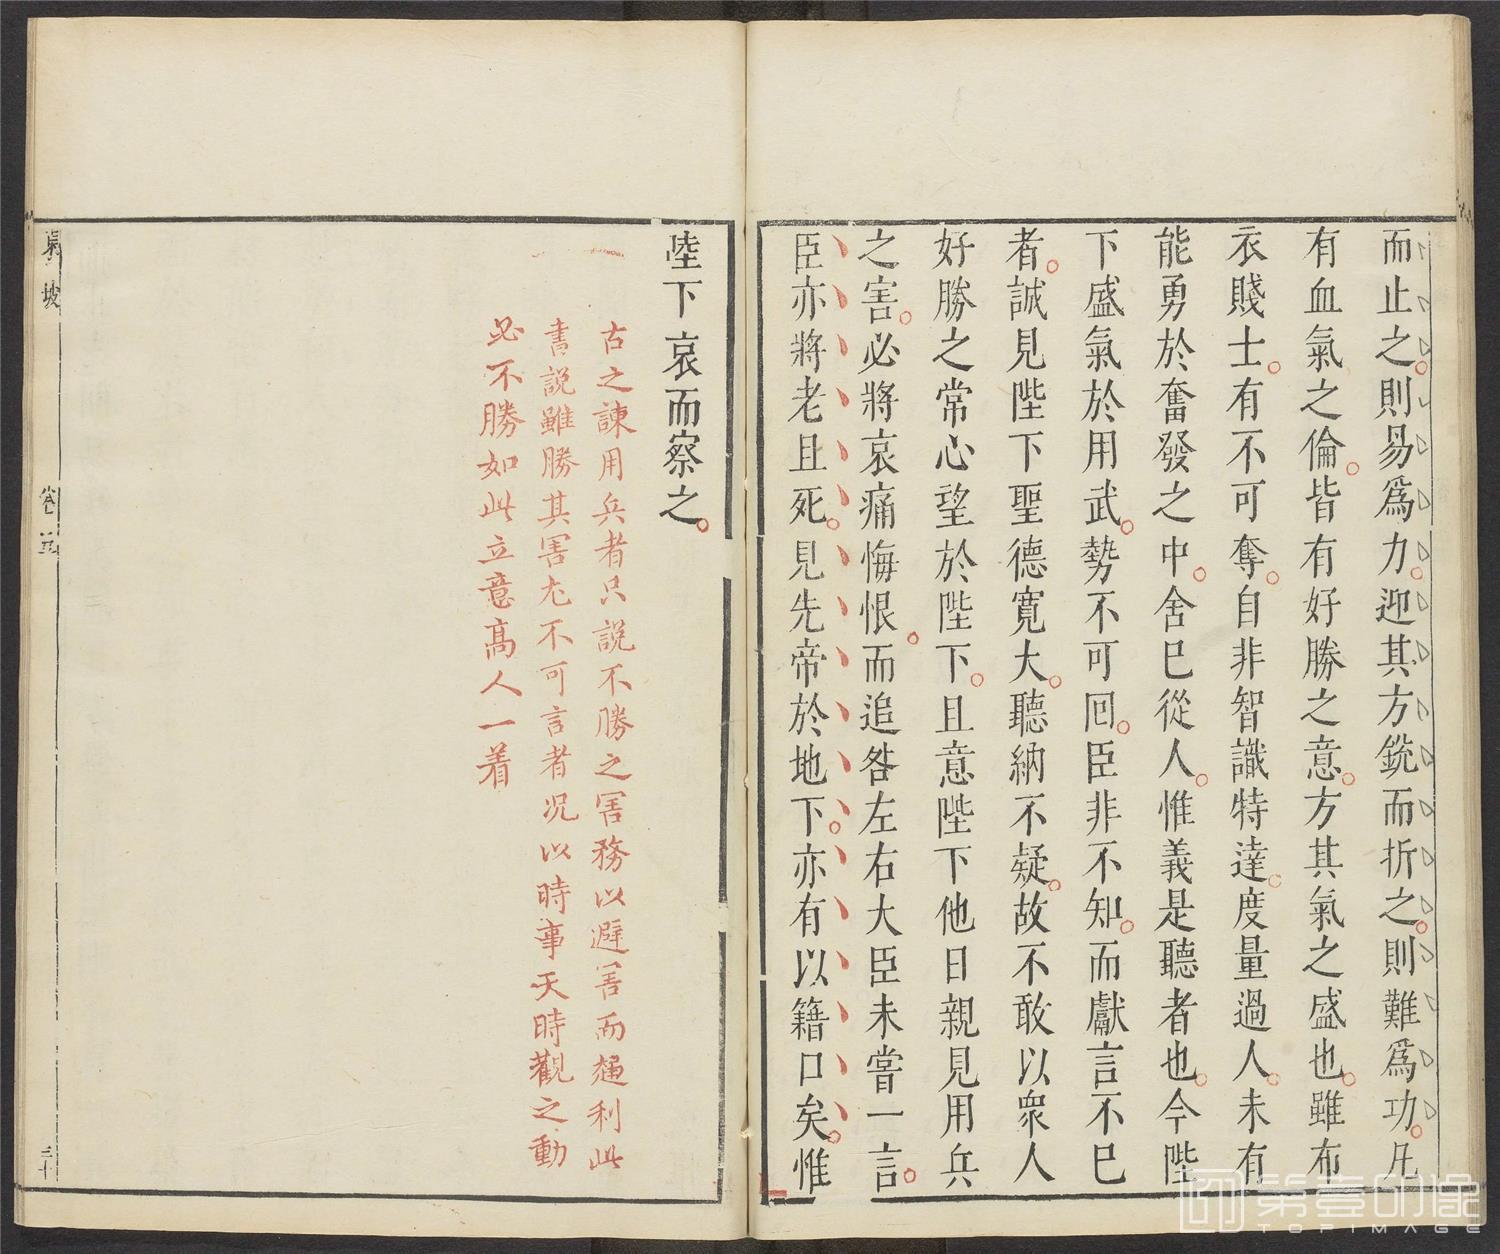 而止之則易爲力迎其方銳而折之則難爲功凡
有血氣之倫皆有好勝之意方其氣之盛也雖布
衣賤士有不可奪自非智識特達度量過人未有
能勇於奮發之中舍已從人惟義是聽者也今陛
下盛氣於用武勢不可回臣非不知而獻言不已
者誠見陛下聖德寬大聽納不疑故不敢以衆人
好勝之常心望於陛下且意陛下他日親見用兵
之害必將哀痛悔恨而追咎左右大臣未嘗一言
臣亦將老且死見先帝於地下亦有以籍口矣惟
陛下哀而察之
古之諫用兵者只說不勝之害務以避害而趨利此
書說雖勝其害尤不可言者况以時事天時觀之動
必不勝如此立意高人一着
東坡
卷三
三十
第壹印像
TOPIMAGE